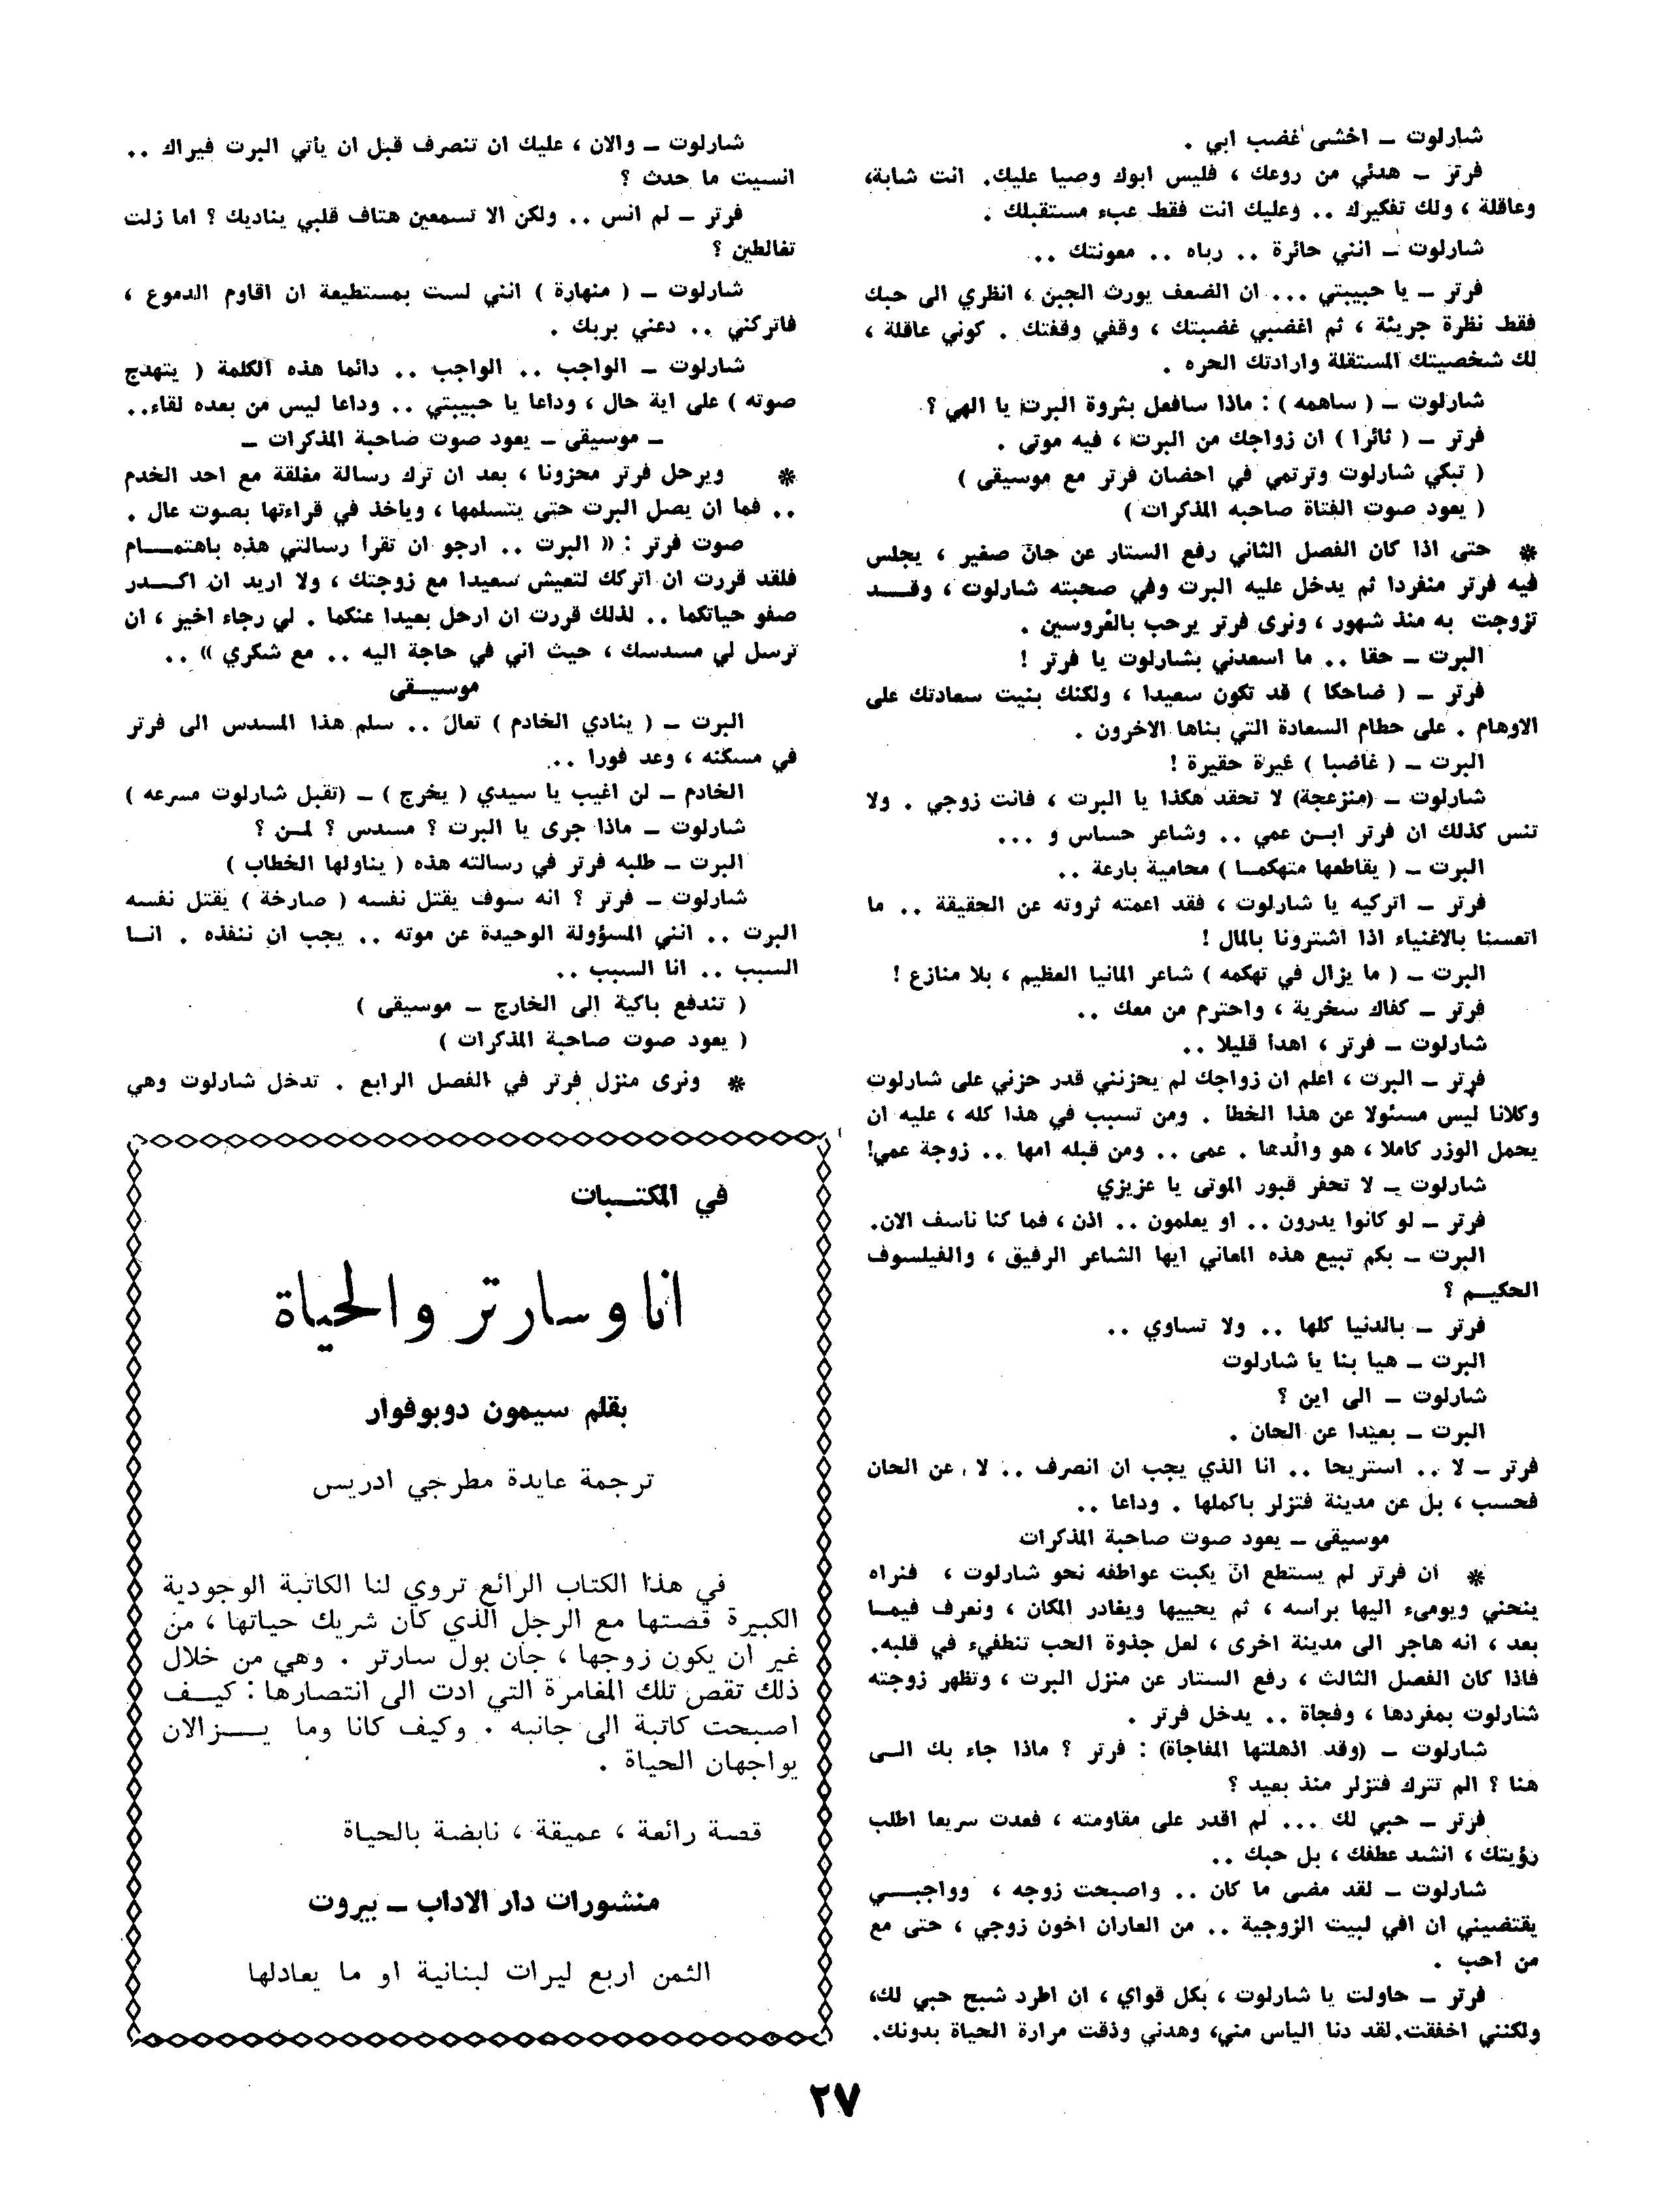 شارلوت – اخشى غضب ابي .
فرتر – هدئي من روعك ، فليس ابوك وصيا عليك. انت شابة،
وعاقلة ، ولك تفكيرك .. وعليك انت فقط عبء مستقبلك .
شارلوت – انني حائرة .. رباه .. معونتك ..
فرتر – يا حبيبتي ... ان الضعف يورث الجبن ، انظري الى حبك
فقط نظرة جريئة ، ثم اغضبي غضبتك ، وقفي وقفتك . كوني عاقلة ،
لك شخصيتك المستقلة وارادتك الحره .
شارلوت – ( ساهمه ) : ماذا سافعل بثروة البرت يا الهي ؟
فرتر – ( ثائرا ) ان زواجك من البرت ، فيه موتى .
( تبكي شارلوت وترتمي في احضان فرتر مع موسيقى )
( يعود صوت الفتاة صاحبه المذكرات )
* حتى اذا كان الفصل الثاني رفع الستار عن حان صغير ، يجلس
فيه فرتر منفردا ثم يدخل عليه البرت وفي صحبته شارلوت ، وقــد
تزوجت به منذ شهور ، ونرى فرتر يرحب بالعروسين .
البرت – حقا .. ما اسعدني بشارلوت يا فرتر !
فرتر – ( ضاحكا ) قد تكون سعيدا ، ولكنك بنيت سعادتك على
الاوهام . على حطام السعادة التي بناها الاخرون .
البرت – ( غاضبا ) غيرة حقيرة !
شارلوت – (منزعجة) لا تحقد هكذا يا البرت ، فانت زوجي . ولا
تنس كذلك ان فرتر ابـن عمي .. وشاعر حساس و ...
البرت – ( يقاطعها متهكمـا ) محامية بارعة ..
فرتر – اتركيه يا شارلوت ، فقد اعمته ثروته عن الحقيقة .. ما
اتعسنا بالاغنياء اذا اشترونا بالمال !
البرت – ( ما يزال في تهكمه ) شاعر المانيا العظيم ، بلا منازع !
فرتر – كفاك سخرية ، واحترم من معك ..
شارلوت – فرتر ، اهدا قليلا ..
فرتر – البرت ، اعلم ان زواجك لم يحزنني قدر حزني على شارلوت
وكلانا ليس مسئولا عن هذا الخطأ . ومن تسبب في هذا كله ، عليه ان
يحمل الوزر كاملا ، هو والدها . عمى .. ومن قبله امها .. زوجة عمي!
شارلوت – لا تحفر قبور الموتى يا عزيزي
فرتر – لو كانوا يدرون .. او يعلمون .. اذن ، فما كنا نأسف الان.
البرت – بكم تبيع هذه المعاني ايها الشاعر الرفيق ، والفيلسوف
الحكيـم ؟
فرتر – بالدنيا كلها .. ولا تساوي ..
البرت – هيا بنا يا شارلوت
شارلوت – الى اين ؟
البرت – بعيدا عن الحان .
فرتر – لا .. استريحا .. انا الذي يجب ان انصرف .. لا عن الحان
فحسب ، بل عن مدينة فتزلر باكملها . وداعا ..
موسيقى – يعود صوت صاحبة المذكرات
* ان فرتر لم يستطع ان يكبت عواطفه نحو شارلوت ، فنراه
ينحني ويومىء اليها براسه ، ثم يحييها ويغادر المكان ، ونعرف فيمـا
بعد ، انه هاجر الى مدينة اخرى ، لعل جذوة الحب تنطفىء في قلبه.
فاذا كان الفصل الثالث ، رفع الستار عن منزل البرت ، وتظهر زوجته
شارلوت بمفردها ، وفجأة .. يدخل فرتر .
شارلوت – (وقد اذهلتها المفاجأة) : فرتر ؟ ماذا جاء بك الـى
هنا ؟ الم تترك فتزلر منذ بعيد ؟
فرتر – حبي لك ... لم اقدر على مقاومته ، فعدت سريعا اطلب
رؤيتك ، انشد عطفك ، بل حبك ..
شارلوت – لقد مضى ما كان .. واصبحت زوجه ، وواجبـي
يقتضيني ان افي لبيت الزوجية .. من العاران اخون زوجي ، حتى مع
من احب .
فرتر – حاولت يا شارلوت ، بكل قواي ، ان اطرد شبح حبي لك،
ولكنني اخفقت. لقد دنا اليأس مني، وهدني وذقت مرارة الحياة بدونك.
شارلوت – والان ، عليك ان تنصرف قبل ان يأتي البرت فيراك ..
انسيت ما حدث ؟
فرتر – لم انس .. ولكن الا تسمعين هتاف قلبي يناديك ؟ اما زلت
تغالطين ؟
شارلوت – ( منهارة ) انني لست بمستطيعة ان اقاوم الدموع ،
فاتركني .. دعني بربك .
شارلوت – الواجب .. الواجب .. دائما هذه الكلمة ( يتهدج
صوته ) على اية حال ، وداعا يا حبيبتي .. وداعا ليس من بعده لقاء..
– موسيقى – يعود صوت صاحبة المذكرات –
* ويرحل فرتر محزونا ، بعد ان ترك رسالة مغلقة مع احد الخدم
.. فما ان يصل البرت حتى يتسلمها ، ويأخذ في قراءتها بصوت عال .
صوت فرتر : « البرت .. ارجو ان تقرا رسالتي هذه باهتمــام
فلقد قررت ان اتركك لتعيش سعيدا مع زوجتك ، ولا اريد ان اكــدر
صفو حياتكما .. لذلك قررت ان ارحل بعيدا عنكما . لي رجاء اخير ، ان
ترسل لي مسدسك ، حيث اني في حاجة اليه .. مع شكري » ..
موسيـقى
البرت – ( ينادي الخادم ) تعال .. سلم هذا المسدس الى فرتر
في مسكنه ، وعد فورا ..
الخادم – لن اغيب يا سيدي ( يخرج ) – (تقبل شارلوت مسرعه )
شارلوت – ماذا جرى يا البرت ؟ مسدس ؟ لمـن ؟
البرت – طلبه فرتر في رسالته هذه ( يناولها الخطاب )
شارلوت – فرتر ؟ انه سوف يقتل نفسه ( صارخة ) يقتل نفسه
البرت .. انني المسؤولة الوحيدة عن موته .. يجب ان ننقذه . انـا
السبب .. انا السبب ..
( تندفع باكية إلى الخارج – موسيقى )
( يعود صوت صاحبة المذكرات )
* ونرى منزل فرتر في الفصل الرابع . تدخل شارلوت وهي
في المكتـبات
انا وسارتر والحياة
بقلم سيمون دوبوفوار
ترجمة عايدة مطرجي ادريس
في هذا الكتاب الرائع تروي لنا الكاتبة الوجودية
الكبيرة قصتها مع الرجل الذي كان شريك حياتها ، من
غير ان يكون زوجها ، جان بول سارتر . وهي من خلال
ذلك تقص تلك المغامرة التي ادت الى انتصارها : كيـف
اصبحت كاتبة الى جانبه . وكيف كانا وما يــزالان
يواجهان الحياة .
قصة رائعة ، عميقة ، نابضة بالحياة
منشورات دار الاداب – بيروت
الثمن اربع ليرات لبنانية او ما يعادلها
٢٧